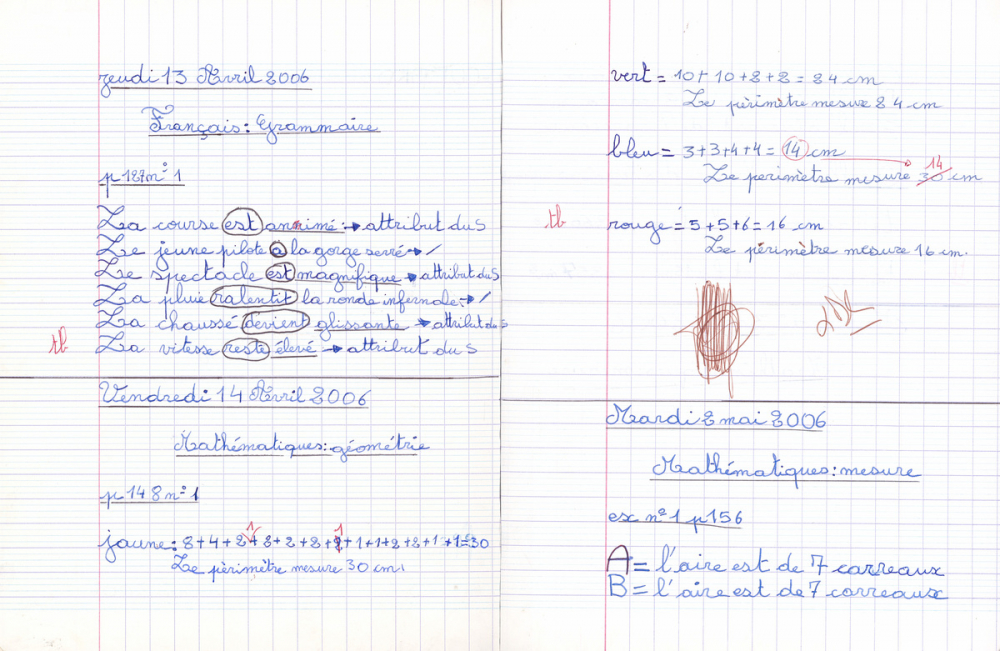 jeudi 13 Avril 2006
Français: Grammaire
p 127 n° 1
La course est annimé → attribut du S
Le jeune pilote a la gorge serré → /
Le spectacle est magnifique → attribut du S
La pluie ralentit la ronde infernale. → /
La chaussé devient glissante → attribut du S
tb La vitesse reste élevé → attribut du S
Vendredi 14 Avril 2006
Mathématiques: géométrie
p 148 n° 1
1 1
jaune: 2+4+2+2+2+2+2+1+1+2+2+1+1=30
Le périmètre mesure 30 cm.
vert = 10+10+2+2=24 cm
Le périmètre mesure 24 cm
bleu = 3+3+4+4= 14 cm
14
Le perimètre mesure 30 cm
tb rouge = 5+5+6=16 cm
Le périmètre mesure 16 cm.
Mardi 2 mai 2006
Mathématiques: mesure
exc n° 1 p 156
A = l'aire est de 7 carreaux
B = l'aire est de 7 carreaux